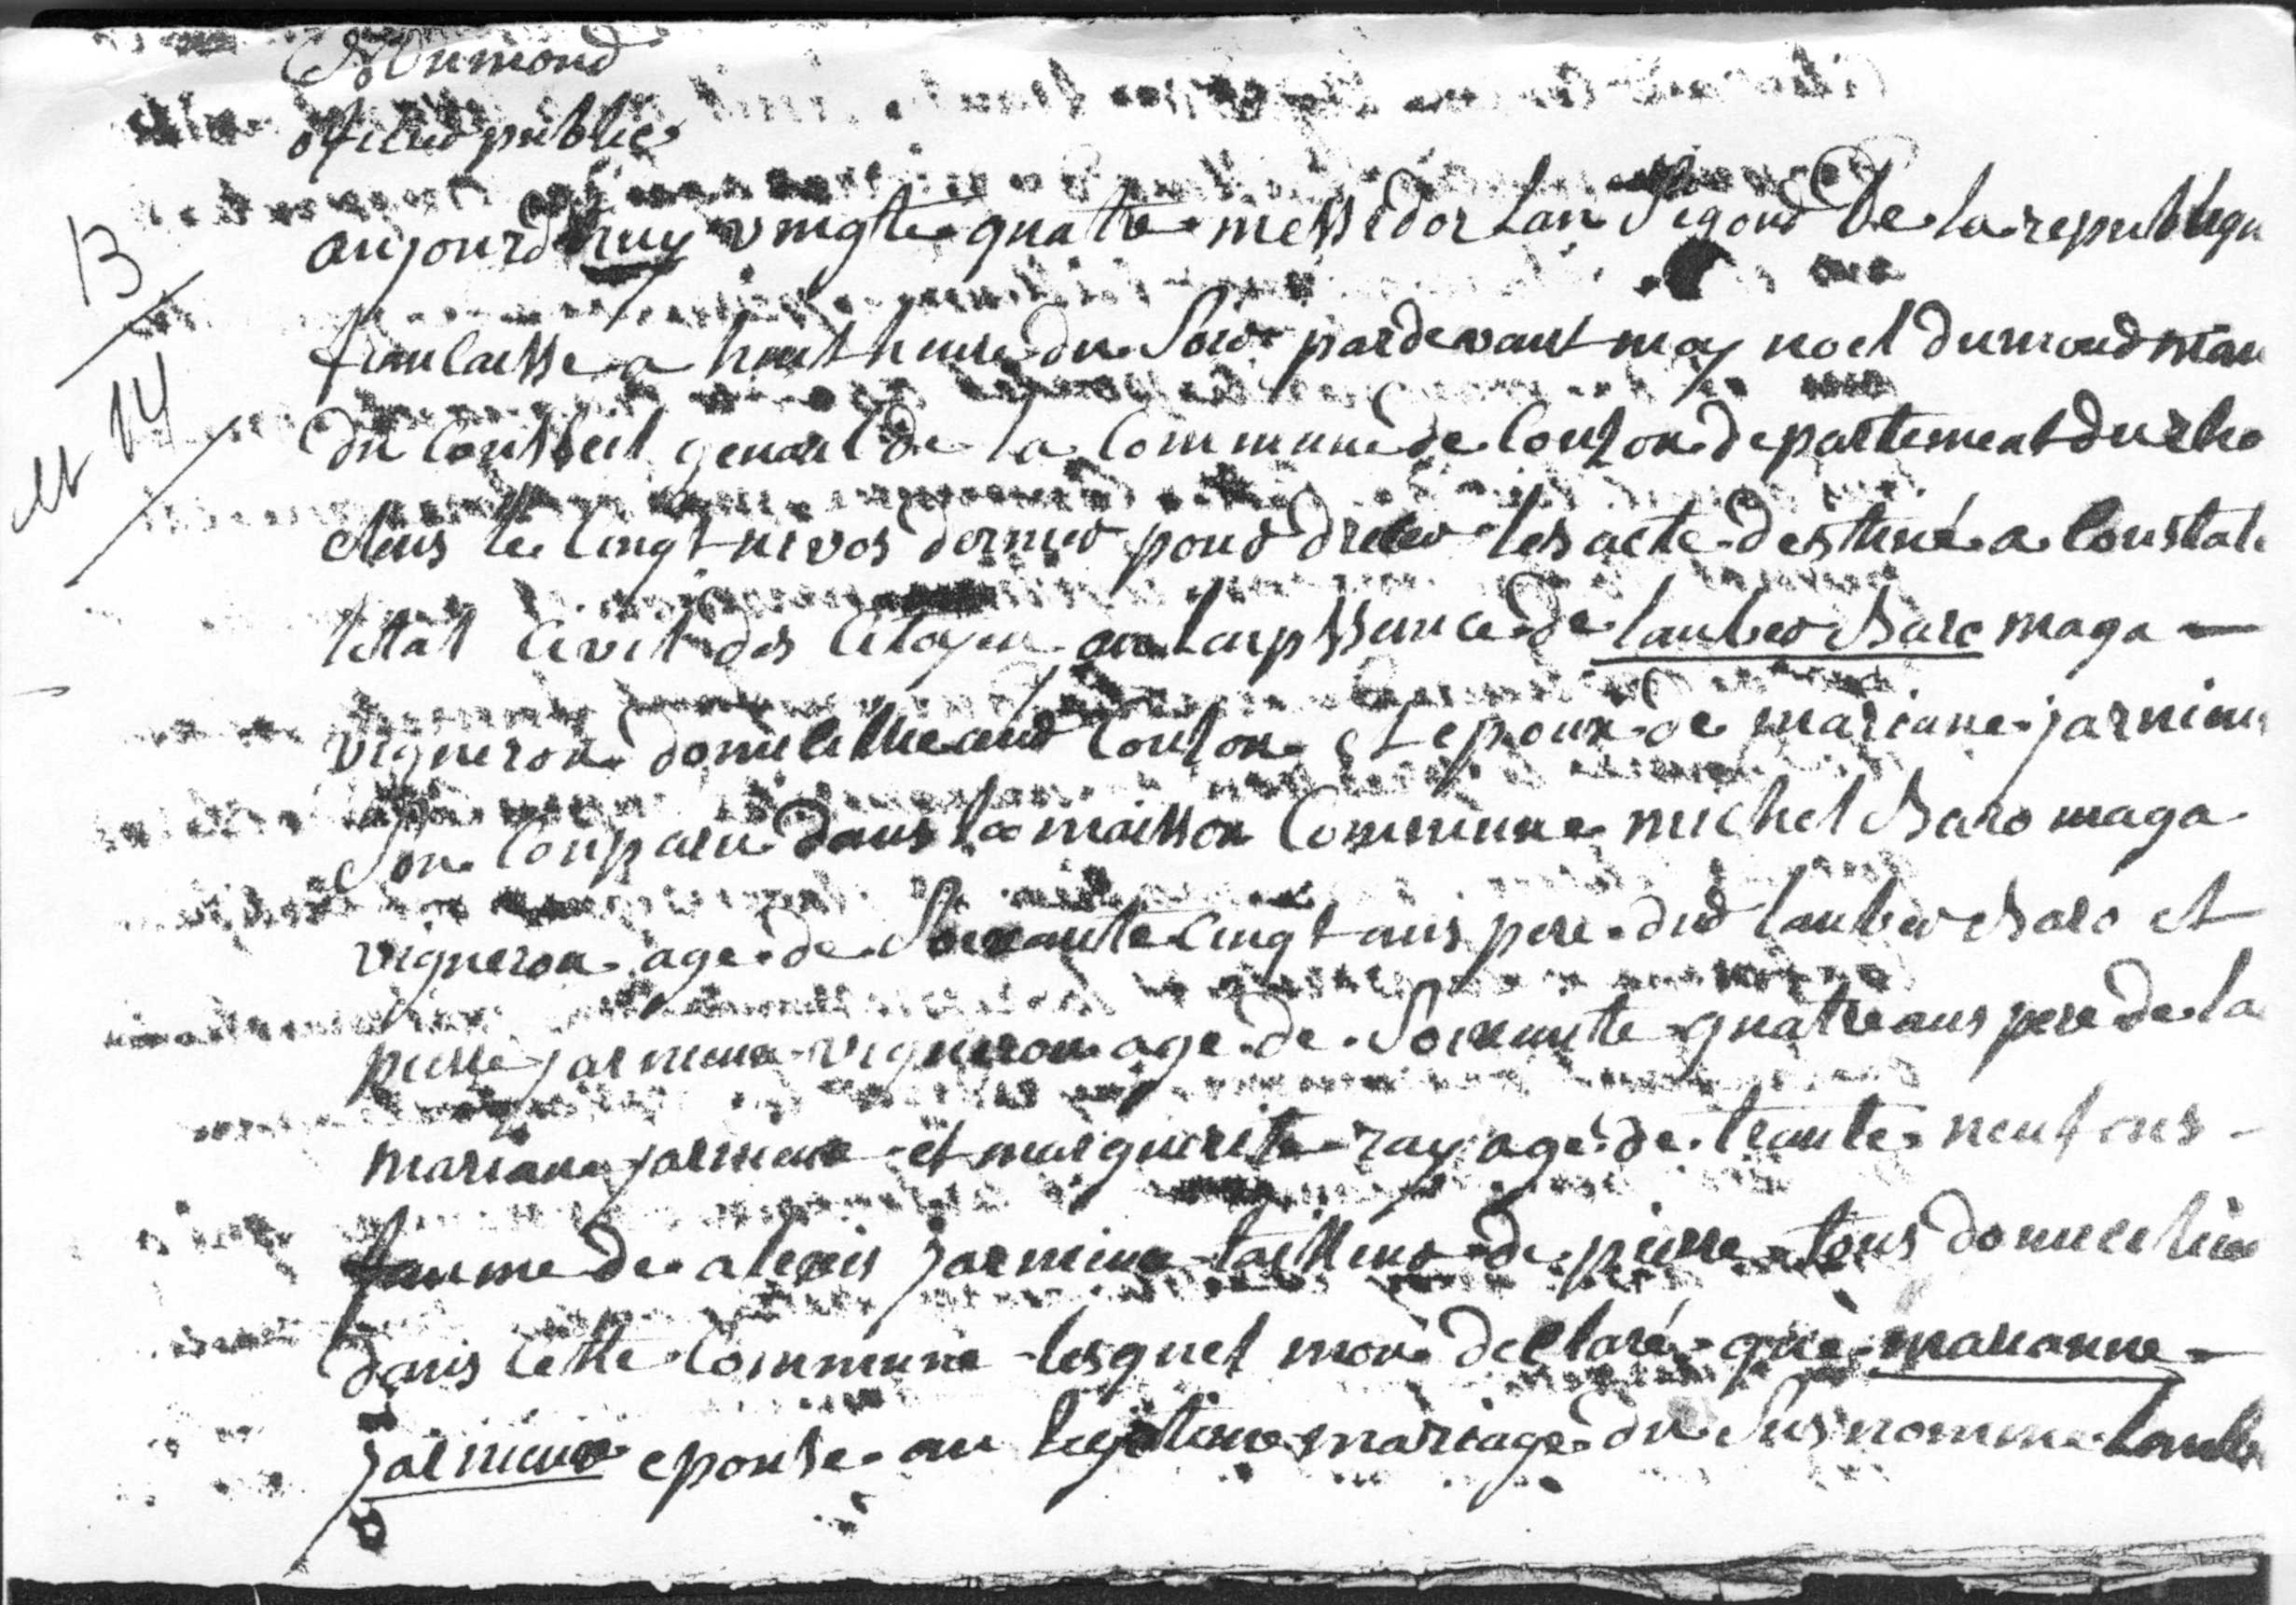 N Dumond
oficier public
13
M 14
aujourdhuy vingte quatre messidor lan segond de la republiqu
francaisse a huit heure du soir pardevant moy noel dumond mam
du consseil general de la commune de Couzon departement du rho
eleus le cinqt nivos dernier pour dresser les acte destiné a constate
letat civil des citoyen en lapssance de lauber Baro maga —
vigneron domicillie aud Couzon et epoux de marianne jarnieu
son conparu dans la maisson commune michel Baro maga
vigneron age de soixante cinqt ans pere dud lauber Baro et
pierre jarnieux vigneron age de soixante quatre ans pere de la
mariane jarnieux et marguerite ray agé de trante neuf ans -
famme de alexis jarnieux tailleur de pierre tous domicilié
dans cette commune lesquel mon declaré que marianne -
jarnieux epousse an legitime mariage du susnommé laube